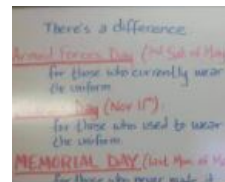 There's a difference
Armed Forces Day (3rd Sat of May)
for those who currently wear
the uniform.
Day (Nov 11th):
for those who used to wear
the uniform.
MEMORIAL DAY (Last Mon. of Ma
for those who never made it